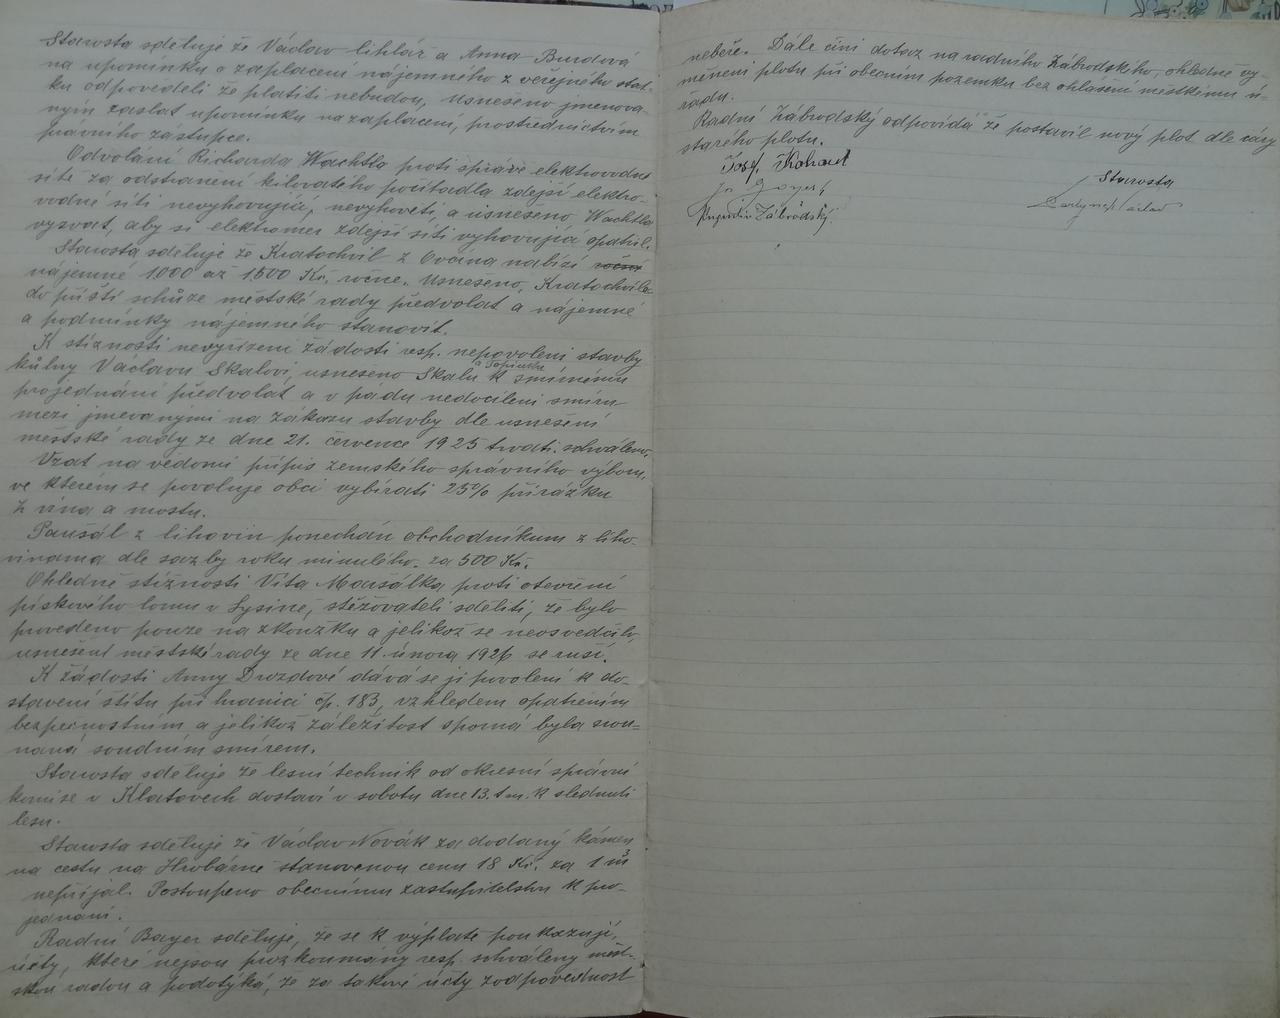 Starosta sděluje že Václav Cihlář a Anna Burdová
na upomínku o zaplacení nájemného z veřejného stat-
ku odpověděli že platiti nebudou, Usnešeno jmenova-
ným zaslat upomínku na zaplacení, prostřednictvím
právního zástupce.
Odvolání Richarda Wachtla proti správě elektrovodné
sítě za odstranění kilovatého počítadla zdejší elektro-
vodné síti nevyhovující, nevyhověti, a usneseno Wachtla
vyzvat, aby si elektroměr zdejší síti vyhovující opatřil.
Starosta sděluje že Kratochvíl z Ovčína nabízí ročně
nájemné 1000 až 1500 Kč. ročně. Usnešeno, Kratochvíla
do příští schůze městské rady předvolat a nájemné
a podmínky nájemného stanovit.
K stížnosti nevyřízení žádosti resp. nepovolení stavby
kůlny Václavu Skalovi, usneseno Skalu k smírnému
projednání předvolat a v pádu nedocílení smíru
mezi jmevanými na zákazu stavby dle usnešení
městské rady ze dne 21. července 1925 trvati. schváleno.
Vzat na vědomí přípis zemského správního výboru,
ve kterém se povoluje obci vybírati 25% přirážku
z vína a moštu.
Paušál z lihovin ponechán obchodníkum z liho-
vinama dle sazby roku minulého. za 500 Kč.
Ohledně stížnosti Víta Maršálka proti otevření
pískového lomu v Lysině, stěžovateli sděliti, že bylo
provedeno pouze na zkoušku a jelikož se neosvědčilo,
usnešení městské rady ze dne 11. února 1926 se ruší.
K žádosti Anny Drozdové dává se jí povolení k do-
stavení štítu při hranici čp. 183, vzhledem opatřením
bezpečnostním a jelikož záležitost sporná byla srov-
naná soudním smírem.
Starosta sděluje že lesní technik od okresní správní
komise v Klatovech dostaví v sobotu dne 13. t.m. k shlednutí
lesu.
Starosta sděluje že Václav Novák za dodaný kámen
na cestu na Hrobárně stanovenou cenu 18 Kč. za 1 m³
nepřijal. Postoupeno obecnímu zastupitelstvu k pro-
jednání.
Radní Bayer sděluje, že se k výplatě poukazují,
účty, které nejsou prozkoumány resp. schváleny měst-
skou radou a podotýká, že za takové účty zodpovědnost
nebéře. Dále činí dotaz na radního Zábrodského, ohledně vy-
měnění plotu při obecním pozemku bez ohlášení městskému ú-
řadu.
Radní Zábrodský odpovídá že postavil nový plot dle čáry
starého plotu.
Josef Kohout
Starosta
Augustin Zábrodský.